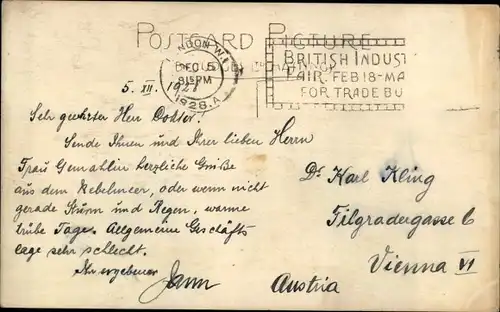 POSTCARD PICTURE
LONDON W.1
DEC 5
8 15 PM
1928. A
BRITISH INDUST
FAIR. FEB 18-MA
FOR TRADE BU
5. XII. 1928
Sehr geehrter Herr Doktor.
Sende Ihnen und Ihrer lieben Herrn
Frau Gemahlin herzliche Grüße
aus dem Nebelmeer, oder wenn nicht
gerade Sturm und Regen, warme
trübe Tage. Allgemeine Geschäfts
lage sehr schlecht.
Ihr ergebener
Dr Karl Kling
Filgradergasse 6
Vienna VI
Austria